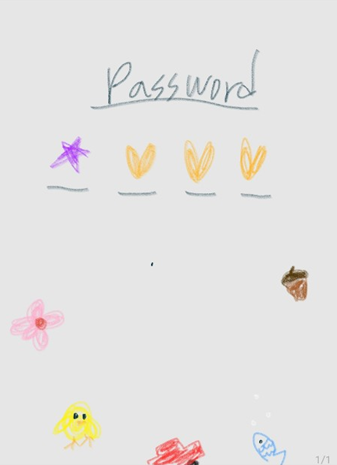 Password
1/1